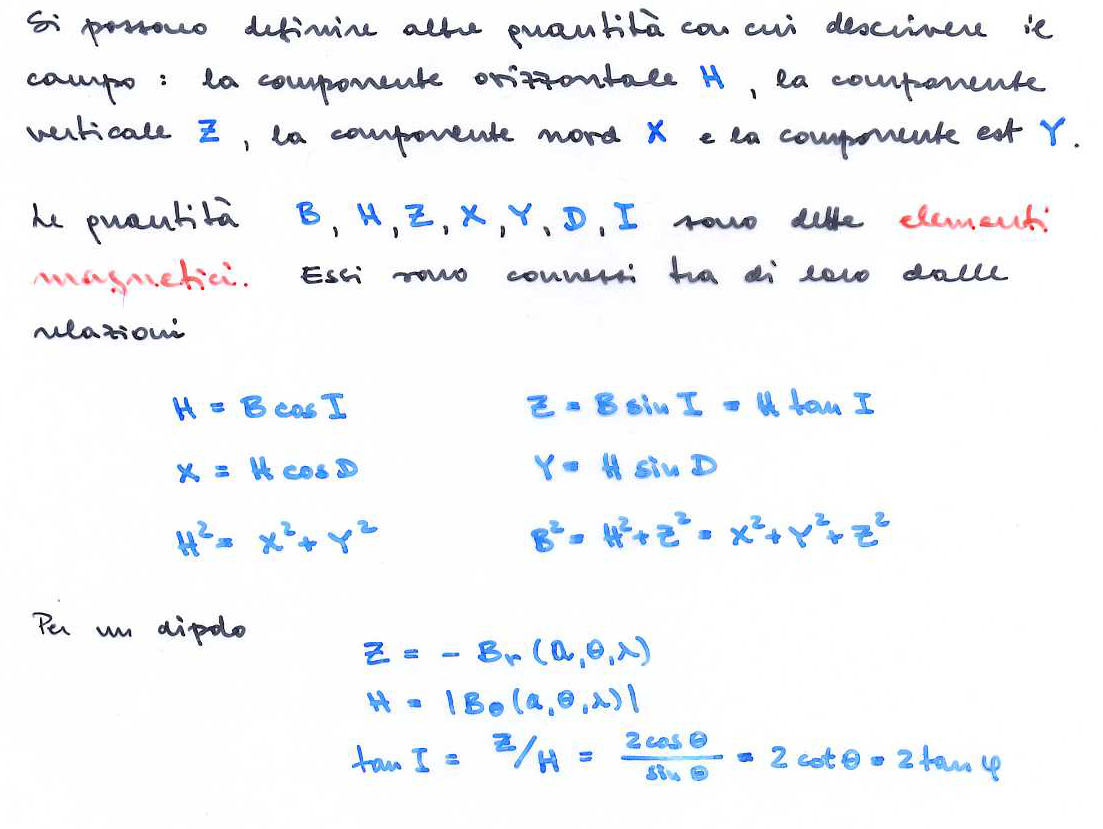 Si possono definire altre quantità con cui descrivere il
campo : la componente orizzontale H , la componente
verticale Z , la componente nord X e la componente est Y .
Le quantità B, H, Z, X, Y, D, I sono dette elementi
magnetici. Essi sono connessi tra di loro dalle
relazioni
H = B cos I Z = B sin I = H tan I
X = H cos D Y = H sin D
H² = X² + Y² B² = H² + Z² = X² + Y² + Z²
Per un dipolo
Z = - Br (a, θ, λ)
H = |Bθ (a, θ, λ)|
tan I = Z/H = 2 cos θ / sin θ = 2 cot θ = 2 tan φ